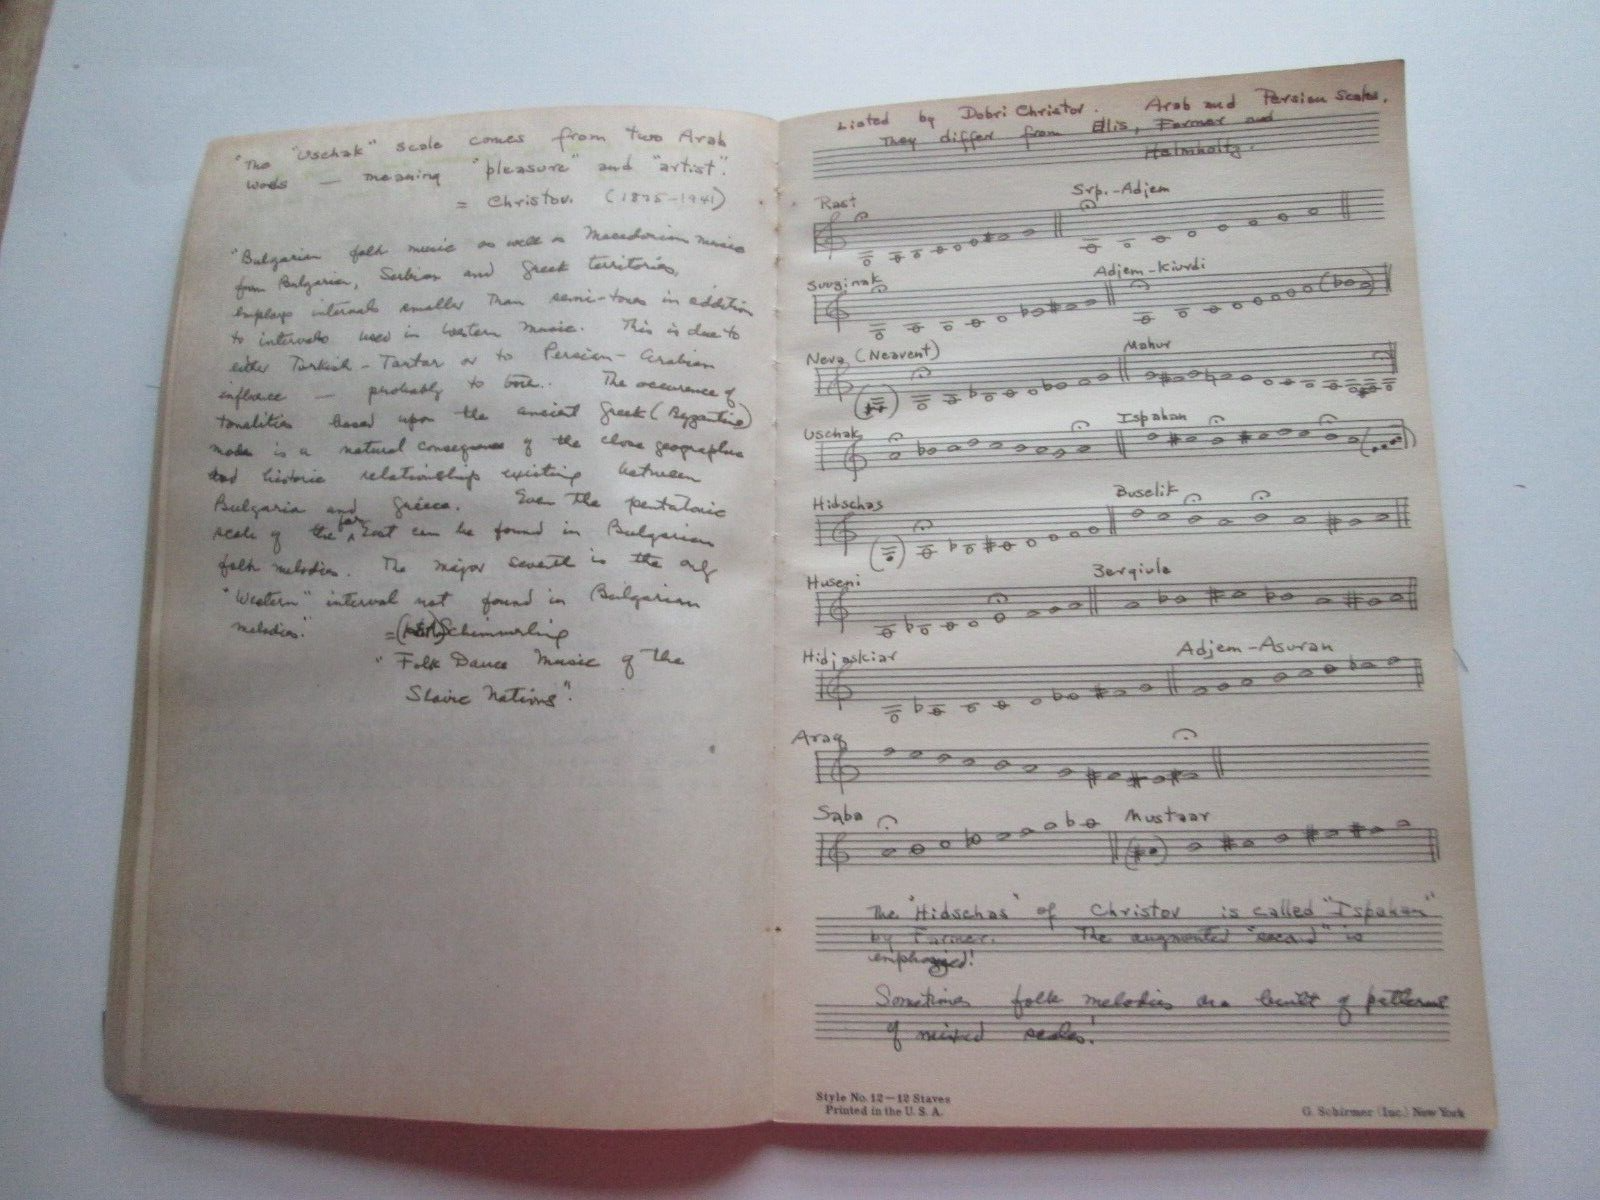 "The "Uschak" scale comes from two Arab
words — meaning "pleasure" and "artist".
= Christov. (1875-1941)
"Bulgarian folk music as well as Macedonian music
from Bulgarian, Serbian and Greek territories,
employs intervals smaller than semi-tones in addition
to intervals used in Western music. This is due to
either Turkish-Tartar or to Persian-Arabian
influence — probably to both. The occurence of
tonalities based upon the ancient Greek (Byzantine)
modes is a natural consequence of the close geographic
and historic relationships existing between
Bulgaria and Greece. Even the pentatonic
scale of the far East can be found in Bulgarian
folk melodies. The major seventh is the only
"Western" interval not found in Bulgarian
melodies."
= Schimmerling
"Folk Dance Music of the
Slavic Nations".
Listed by Dobri Christov. Arab and Persian Scales.
They differ from Ellis, Farmer and
Helmholtz.
Rast Srp.-Adjem
Suuginak Adjem-Kiurdi
Neva (Neavent) Mahur
Uschak Ispahan
Hidschas Buselik
Huseni Zerqiule
Hidjaskiar Adjem-Asuran
Araq
Saba Mustaar
The "Hidschas" of Christov is called "Ispahan"
by Farmer. The augmented "second" is
emphasized!
Sometimes folk melodies are built of patterns
of mixed scales!
Style No. 12—12 Staves
Printed in the U. S. A.
G. Schirmer (Inc.) New York